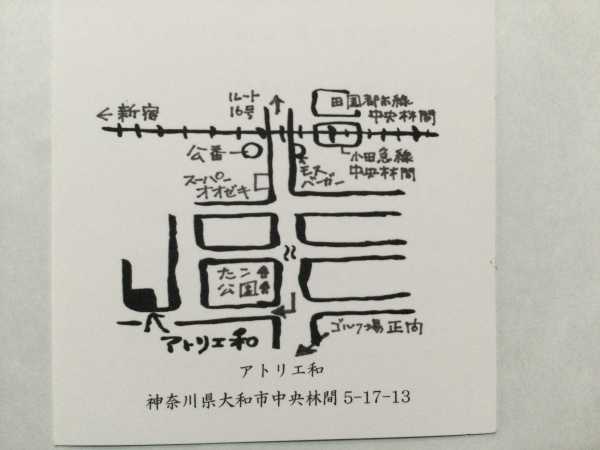 ルート
16号
田園都市線
中央林間
←新宿
小田急線
中央林間
公番
モス
バーガー
スーパー
オオゼキ
たこ
公園
ゴルフ場正面
アトリエ和
アトリエ和
神奈川県大和市中央林間 5-17-13